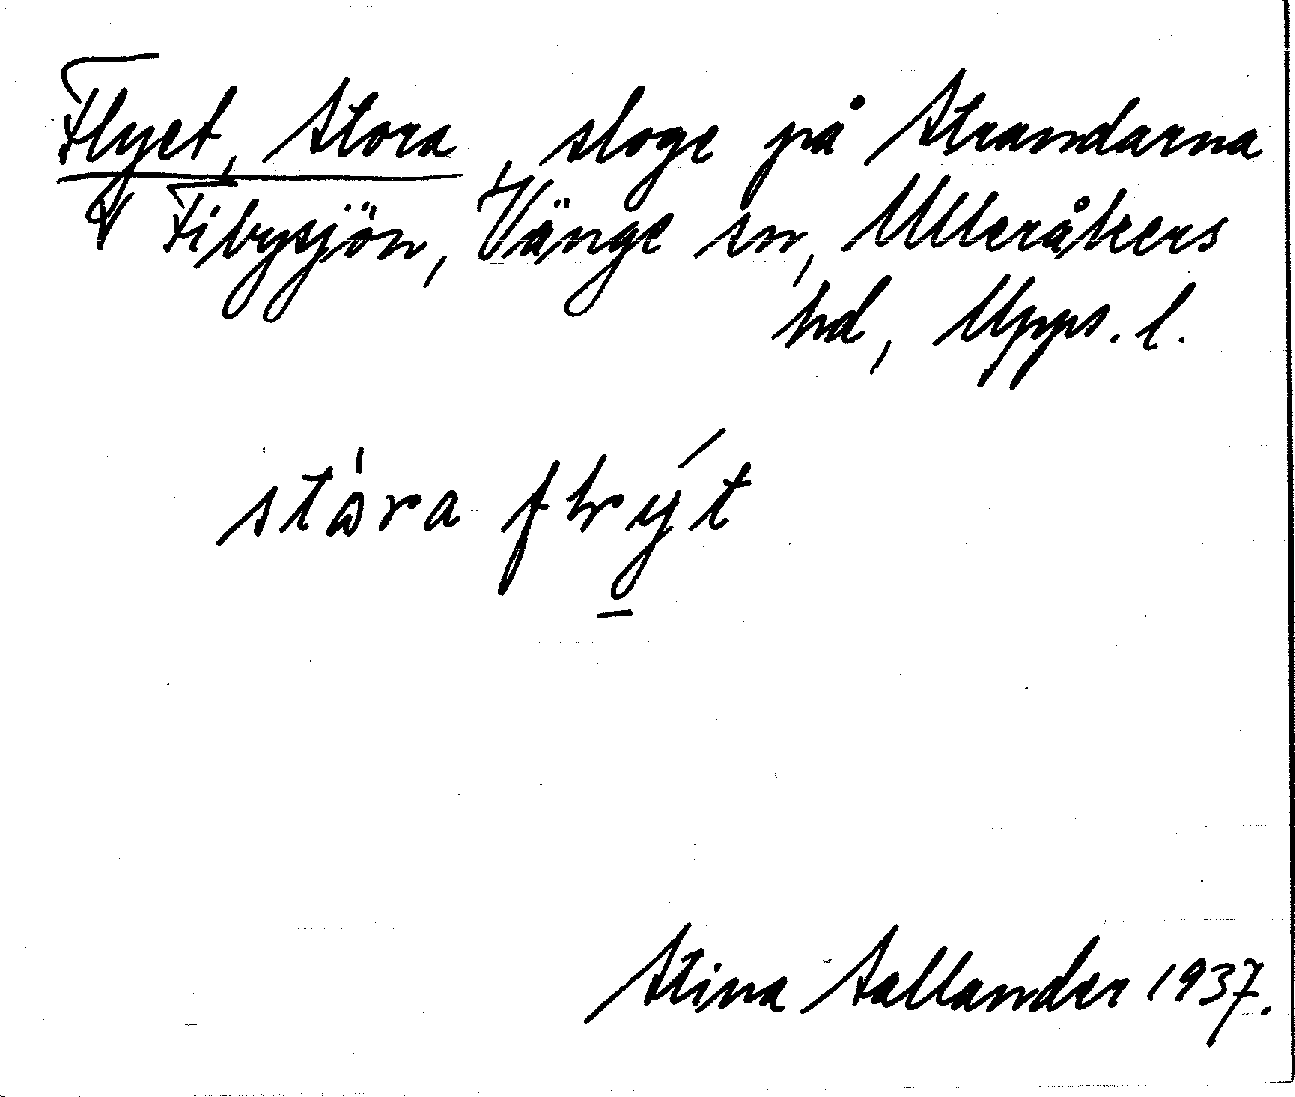 Flyet, Stora, sloge på Strandarna
av Fibysjön, Vänge sn, Ulleråkers
hd, Upps. l.
stòra flýt
Stina Sallander 1937.